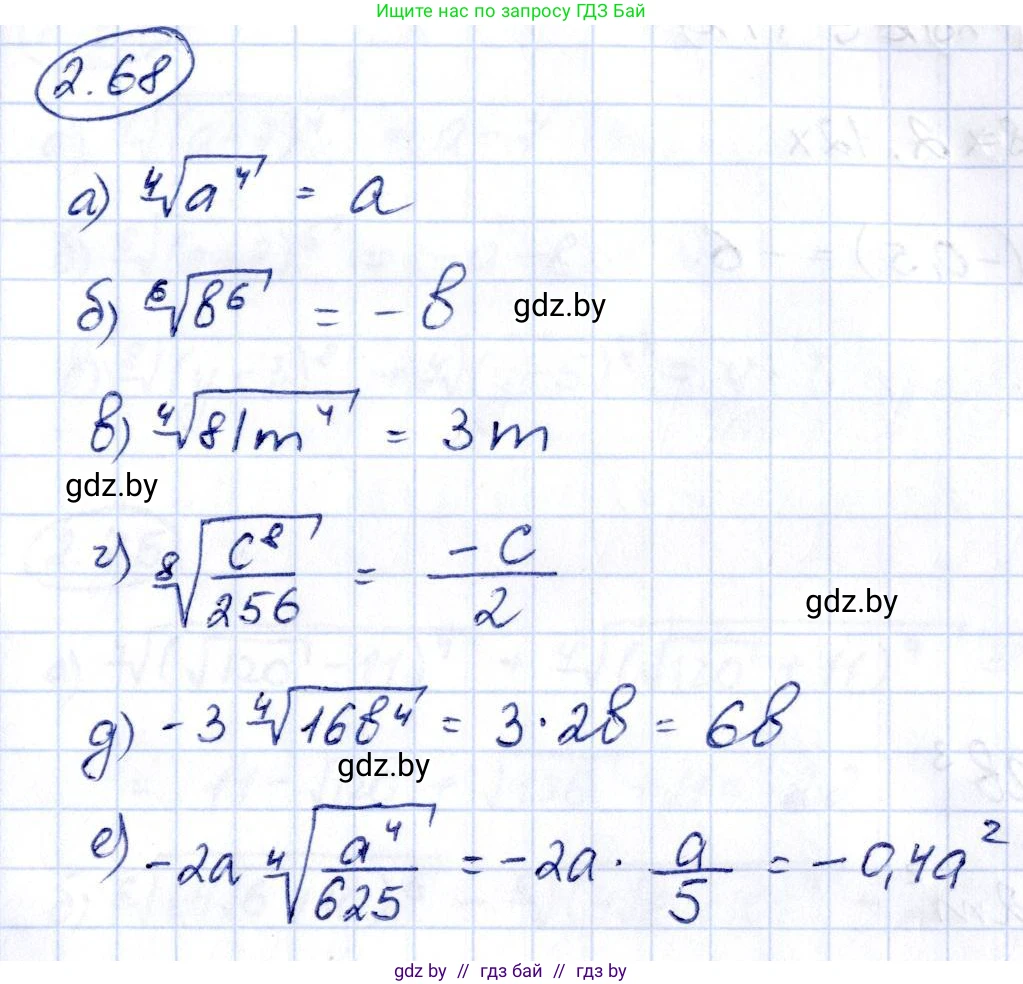 Ищите нас по запросу ГДЗ Бай
2.68
а) ⁴√(a⁴) = a
б) ⁶√(b⁶) = - b
gdz.by
в) ⁴√(81m⁴) = 3m
gdz.by
г) ⁸√(c⁸/256) = -c/2
gdz.by
д) -3 ⁴√(16b⁴) = 3·2b = 6b
gdz.by
е) -2a ⁴√(a⁴/625) = -2a · a/5 = -0,4a²
gdz.by // гдз бай // гдз by